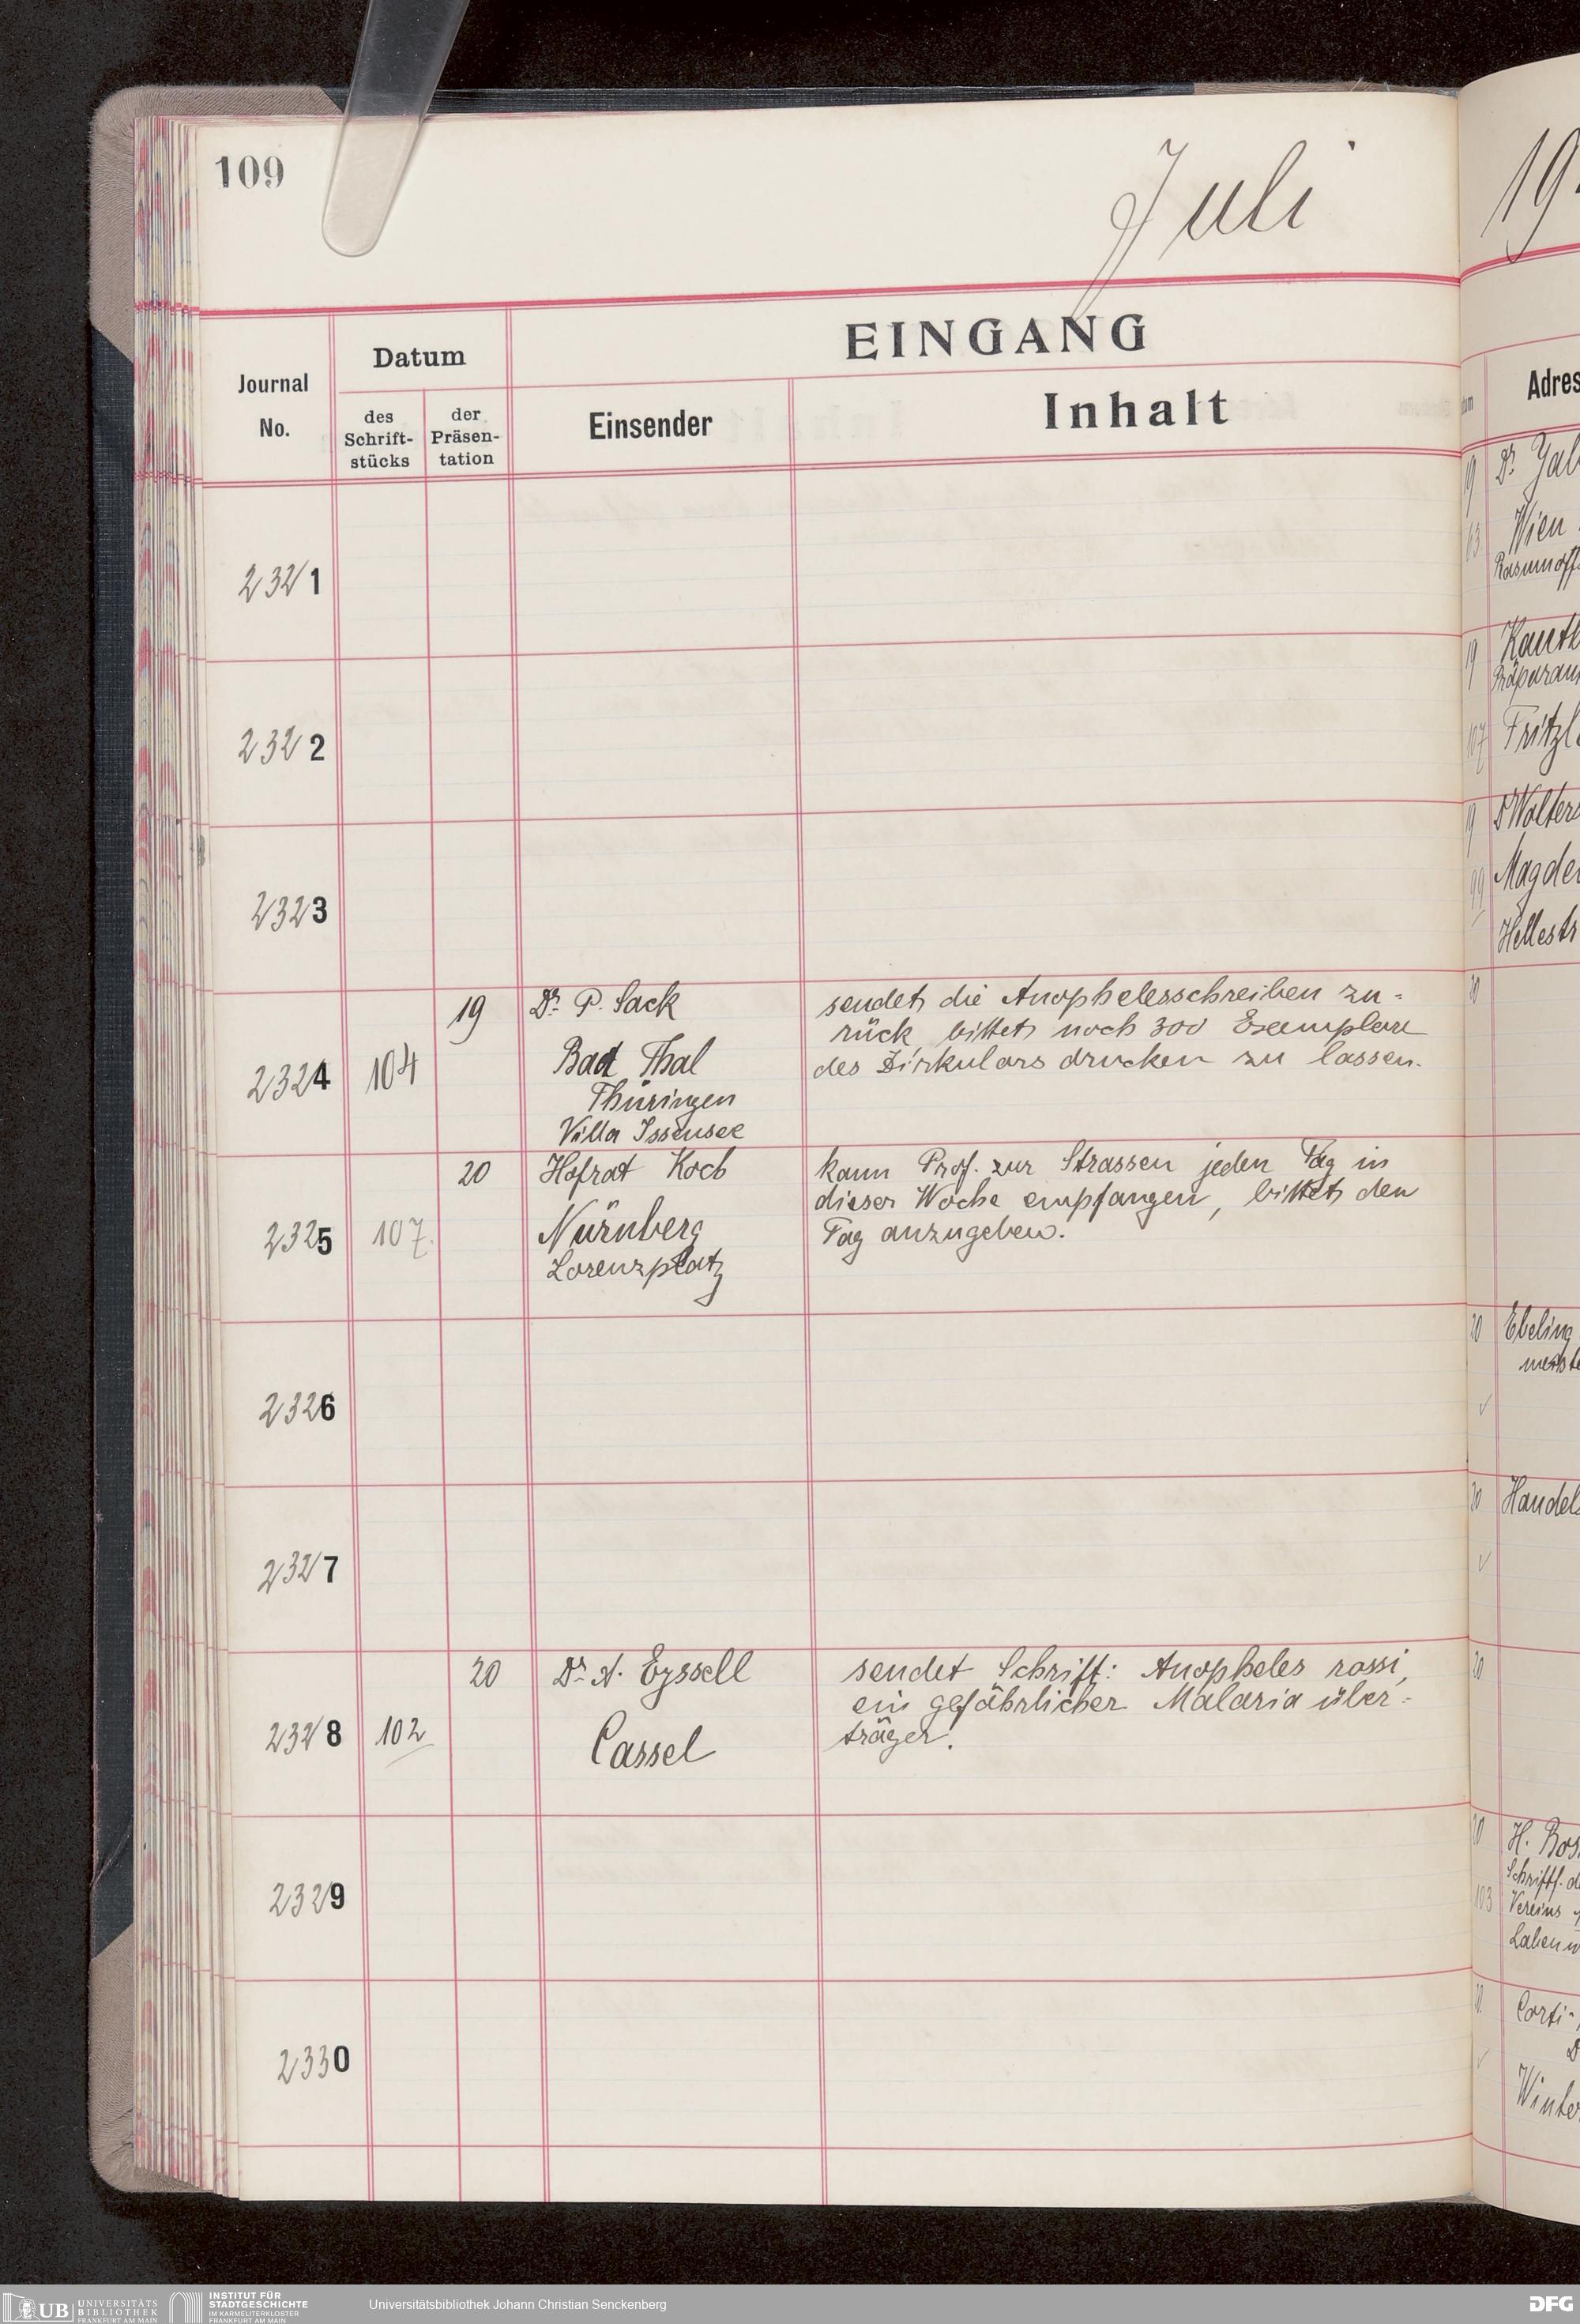 109
Juli
EINGANG
Journal
No.
Datum
des
Schrift-
stücks
der
Präsen-
tation
Einsender
Inhalt
2321
2322
2323
2324
104
19
Dr. P. Sack
Bad Thal
Thüringen
Villa Issensee
sendet die Anophelesschreiben zu-
rück, bittet noch 300 Exemplare
des Zirkulars drucken zu lassen.
2325
107.
20
Hofrat Koch
Nürnberg
Lorenzplatz
kann Prof. zur Strassen jeden Tag in
dieser Woche empfangen, bittet den
Tag anzugeben.
2326
2327
2328
102
20
Dr. A. Eyssell
Cassel
sendet Schrift: Anopheles rossi,
ein gefährlicher Malaria über-
träger!
2329
2330
19
Adres
19
Dr. Jal
Wien
19
107
Fritzl
19
Wolters
99
Magde
Hellestr
20
20
Ebeling
20
Handels
20
20
H. Bos
Schriftf. d
103
Vereins
Corti-
Winter
UB
UNIVERSITÄTS
BIBLIOTHEK
FRANKFURT AM MAIN
INSTITUT FÜR
STADTGESCHICHTE
IM KARMELITERKLOSTER
FRANKFURT AM MAIN
Universitätsbibliothek Johann Christian Senckenberg
DFG